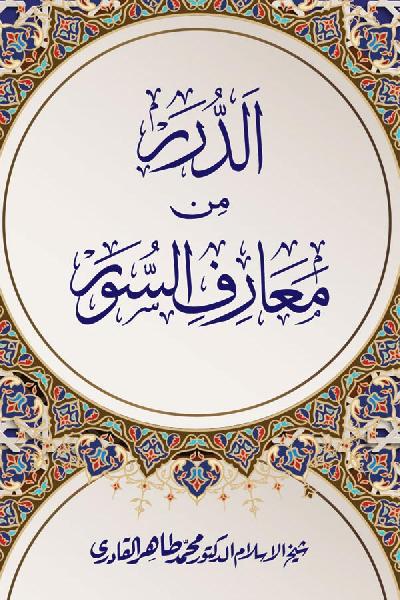 الدُّرَر
مِن
مَعَارِفِ السُّوَر
شيخ الاسلام الدكتور محمد طاهر القادري